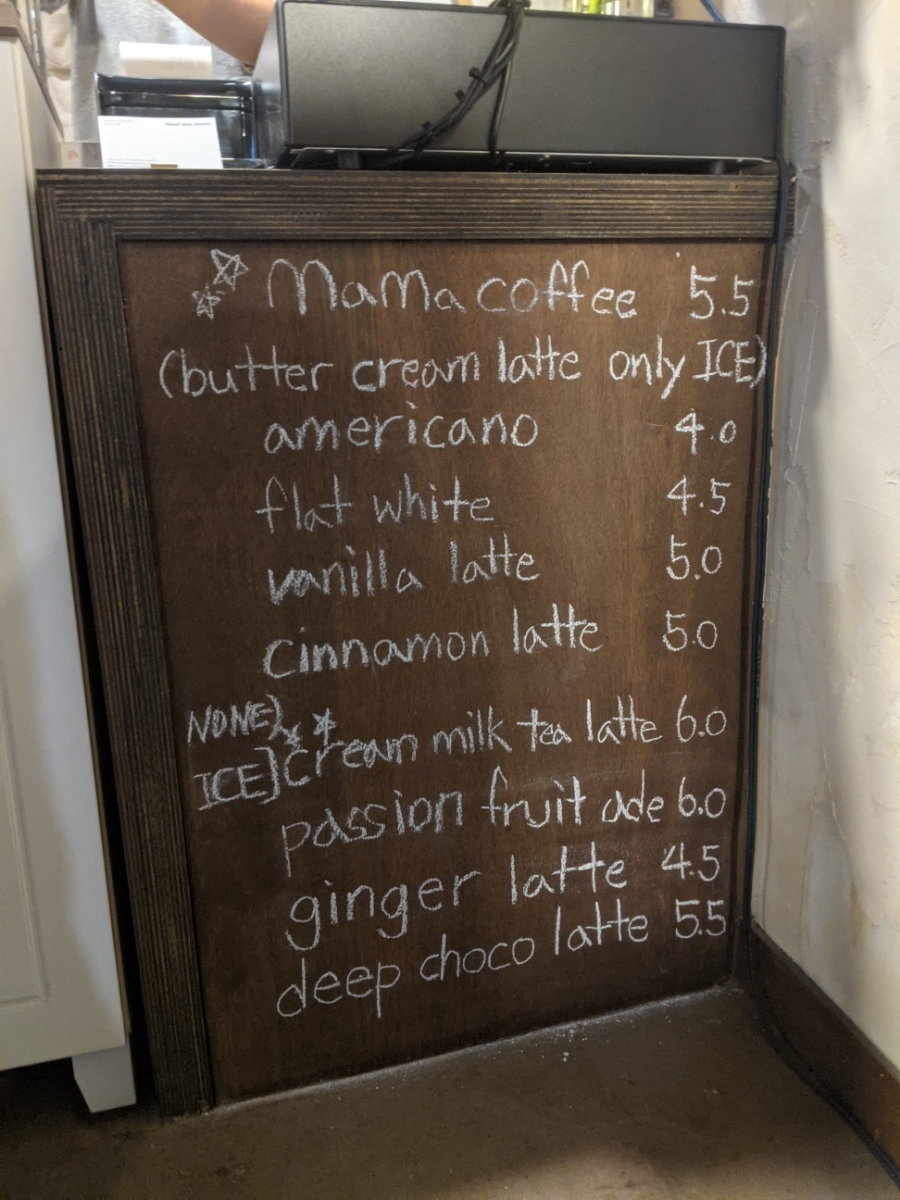 Mama coffee 5.5
(butter cream latte only ICE)
americano 4.0
flat white 4.5
vanilla latte 5.0
cinnamon latte 5.0
NONE)
ICE] cream milk tea latte 6.0
passion fruit ade 6.0
ginger latte 4.5
deep choco latte 5.5